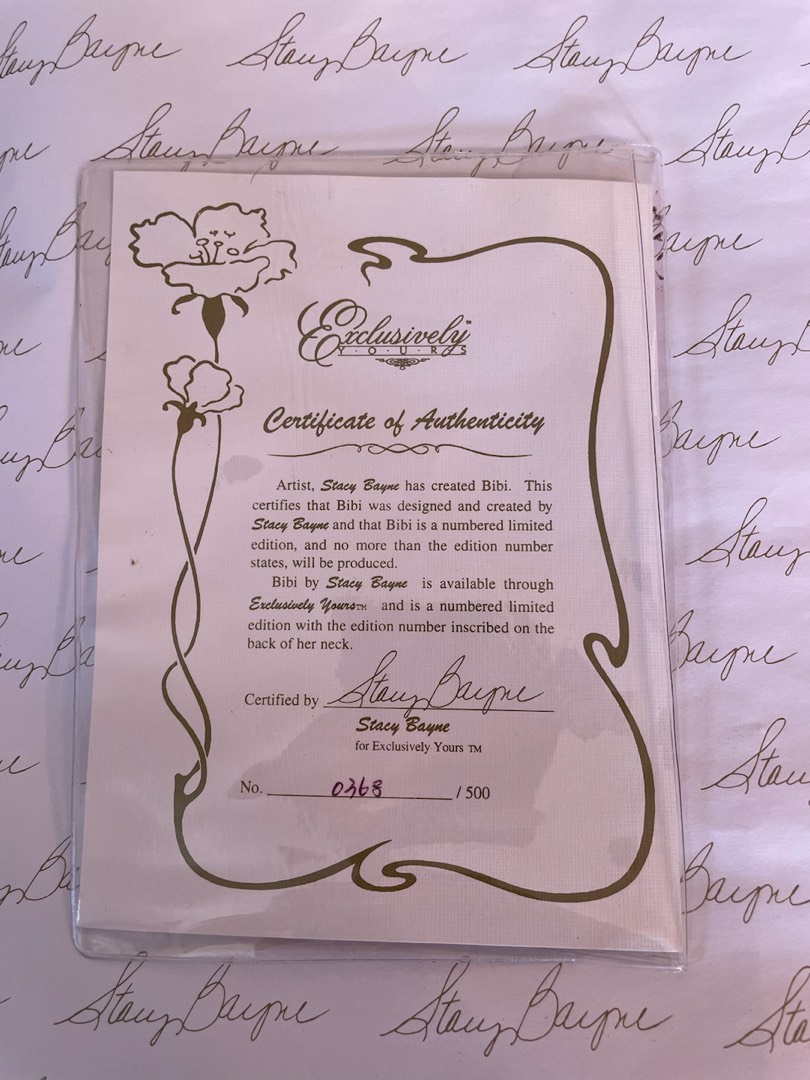 Stacy Bayne Stacy Bayne Stacy Bayne
Stacy Bayne Stacy Bayne Stacy B
Bayne
Exclusively™
YOURS
Certificate of Authenticity
Artist, Stacy Bayne has created Bibi. This
certifies that Bibi was designed and created by
Stacy Bayne and that Bibi is a numbered limited
edition, and no more than the edition number
states, will be produced.
Bibi by Stacy Bayne is available through
Exclusively Yours™ and is a numbered limited
edition with the edition number inscribed on the
back of her neck.
Certified by Stacy Bayne
Stacy Bayne
for Exclusively Yours ™
No. 0368 / 500
Bayne
Stacy Bayne Stacy Bayne Sta